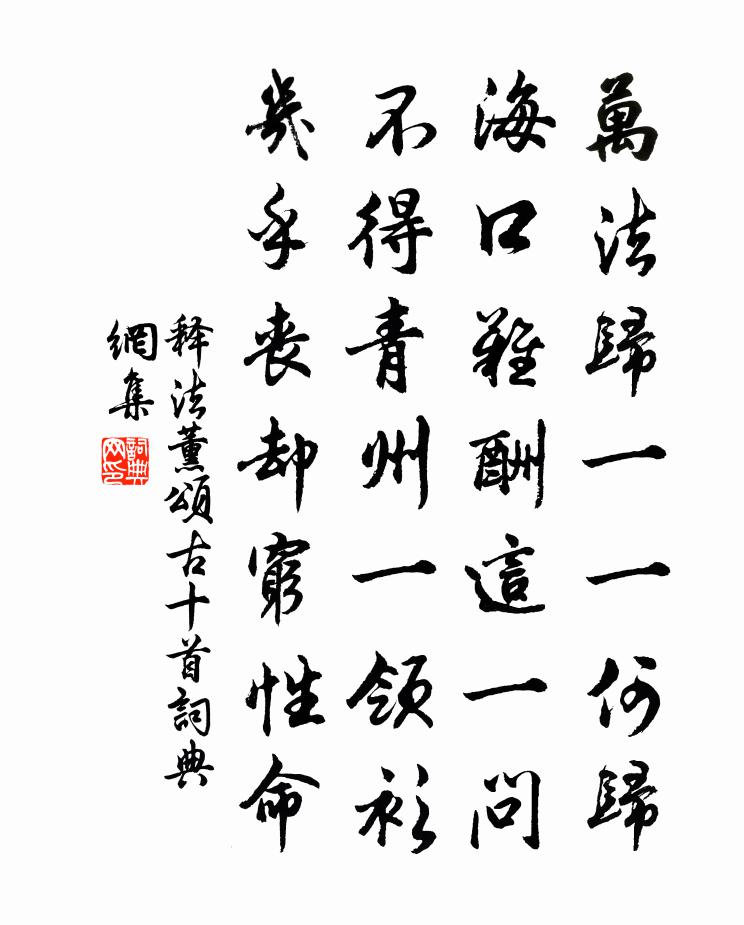 萬法歸一一何歸
海口難酬這一問
不得青州一領衫
幾乎喪却窮性命
释法薰頌古十首詞典
網集
詞典
网印